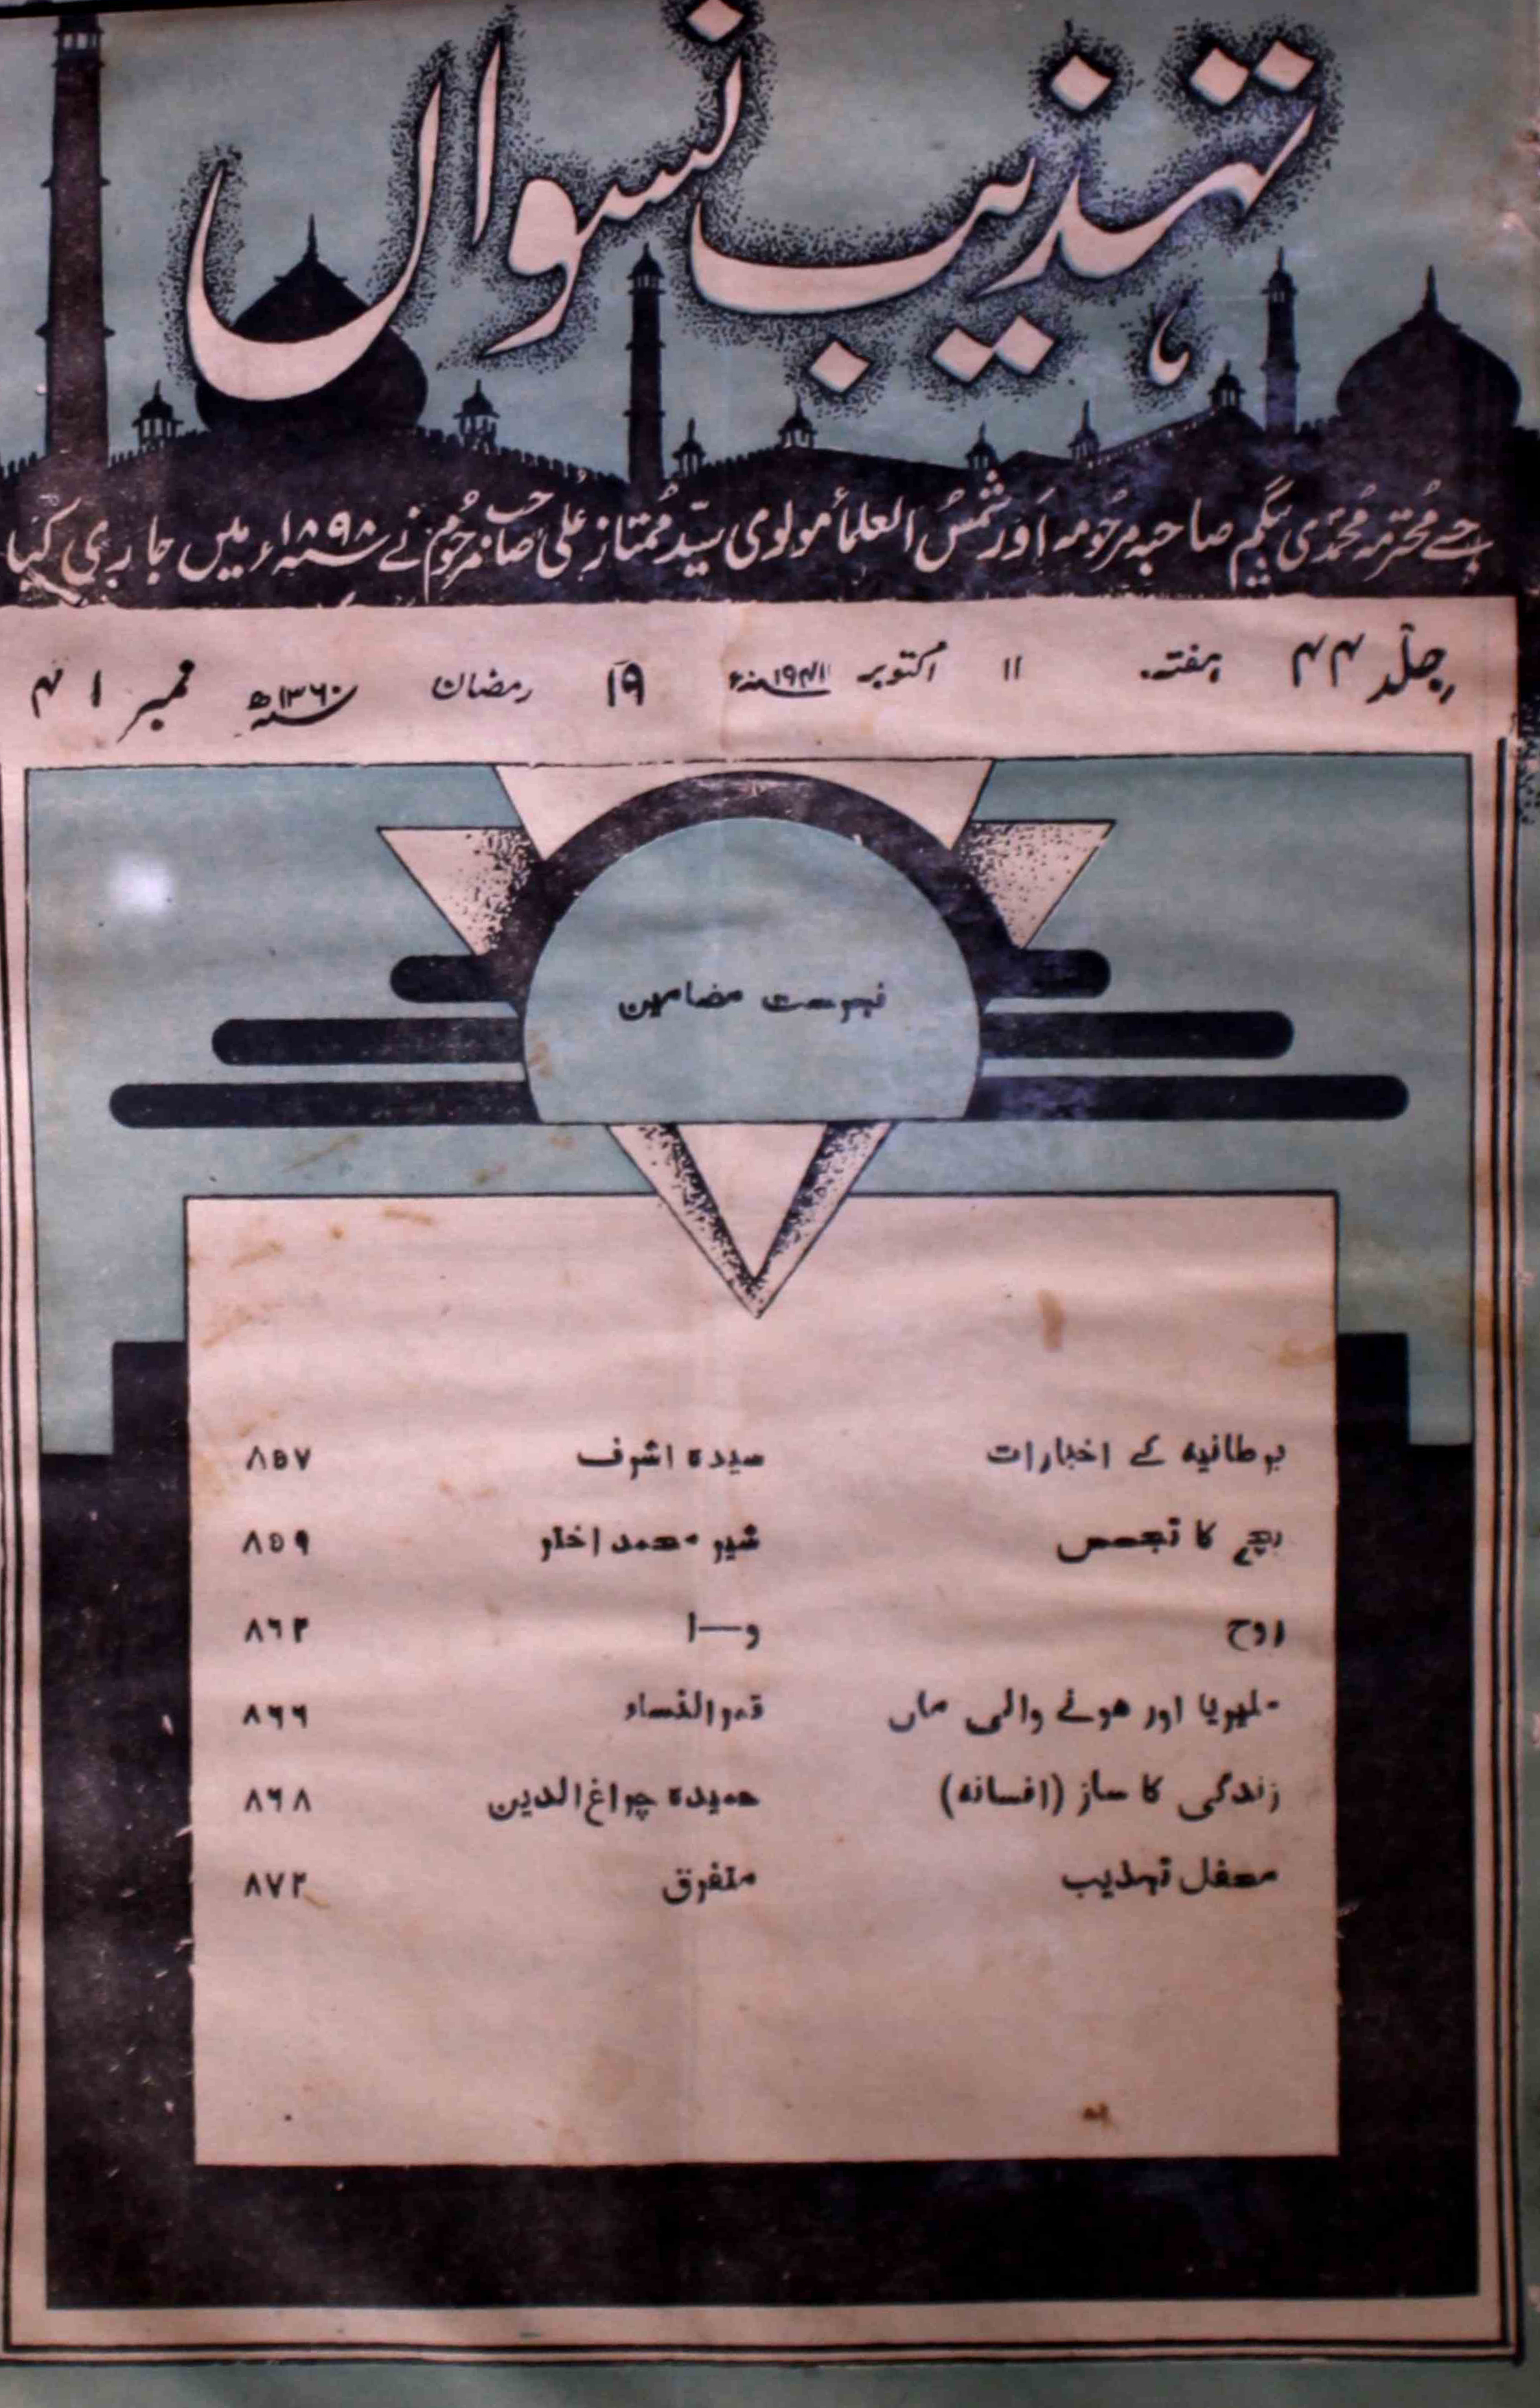 تہذیب نسواں
جسے محترمہ محمدی بیگم صاحبہ مرحومہ اور شمس العلماء مولوی سید ممتاز علی صاحب مرحوم نے سنہ ۱۸۹۸ء میں جاری کیا
جلد ۴۴ ہفتہ ۱۱ اکتوبر سنہ ۱۹۴۱ء ۱۹ رمضان سنہ ۱۳۶۰ھ نمبر ۴۱
فہرست مضامین
برطانیہ کے اخبارات سیدہ اشرف ۸۵۷
بچے کا تجسس شیر محمد اختر ۸۵۹
روح و—ا ۸۶۳
ملیریا اور ہونے والی ماں قمر النساء ۸۶۶
زندگی کا ساز (افسانہ) حمیدہ چراغ الدین ۸۶۸
محفل تہذیب متفرق ۸۷۳